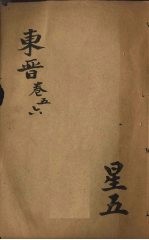 東晋
卷五六
星五